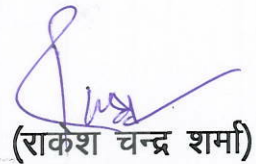 (राकेश चन्द्र शर्मा)